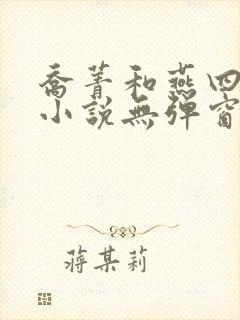 喬菁和燕四
小説無彈窗
蔣某莉